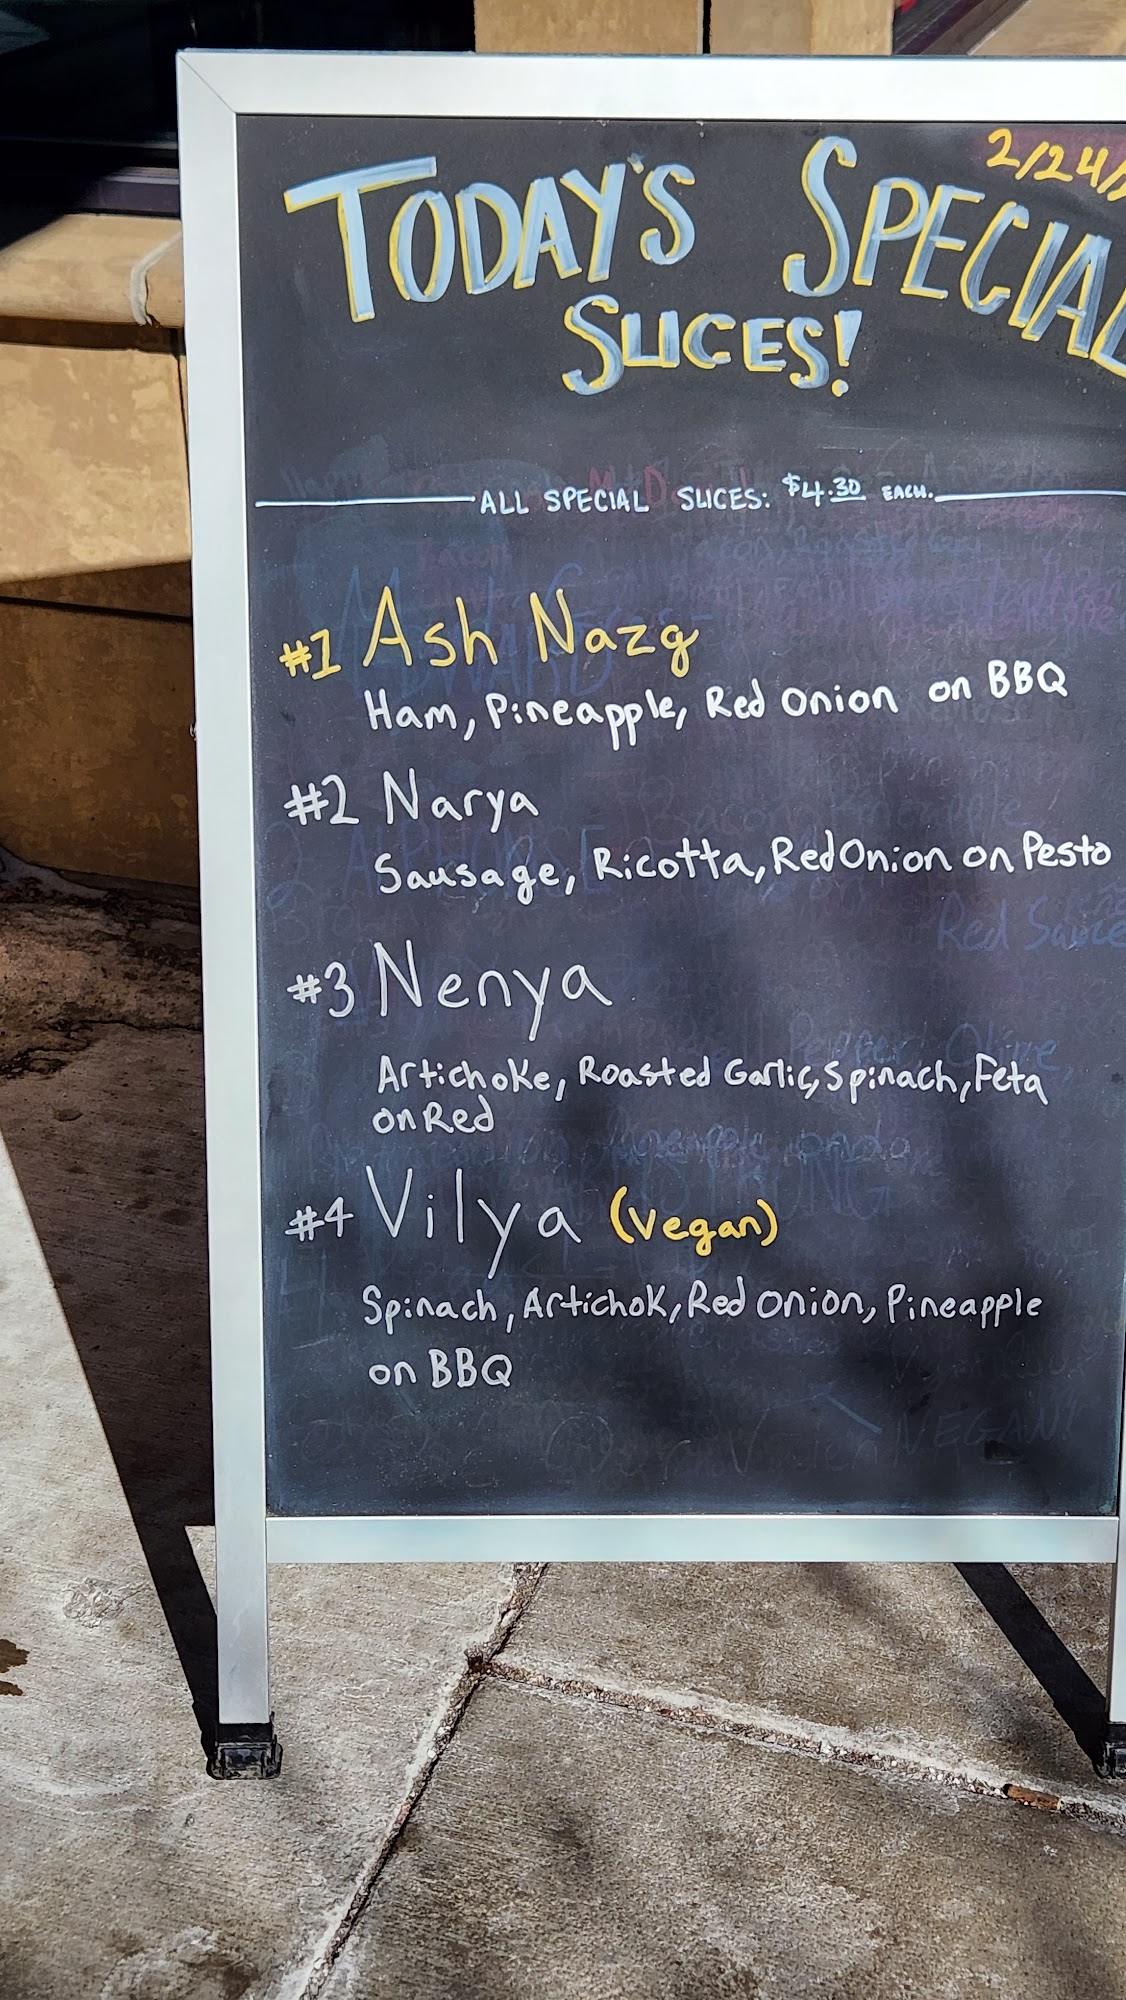 2/24/
TODAY'S SPECIAL
SLICES!
ALL SPECIAL SLICES: $4.30 EACH.
#1 Ash Nazg
Ham, Pineapple, Red Onion on BBQ
#2 Narya
Sausage, Ricotta, Red Onion on Pesto
#3 Nenya
Artichoke, Roasted Garlic, Spinach, Feta
on Red
#4 Vilya (Vegan)
Spinach, Artichok, Red Onion, Pineapple
on BBQ